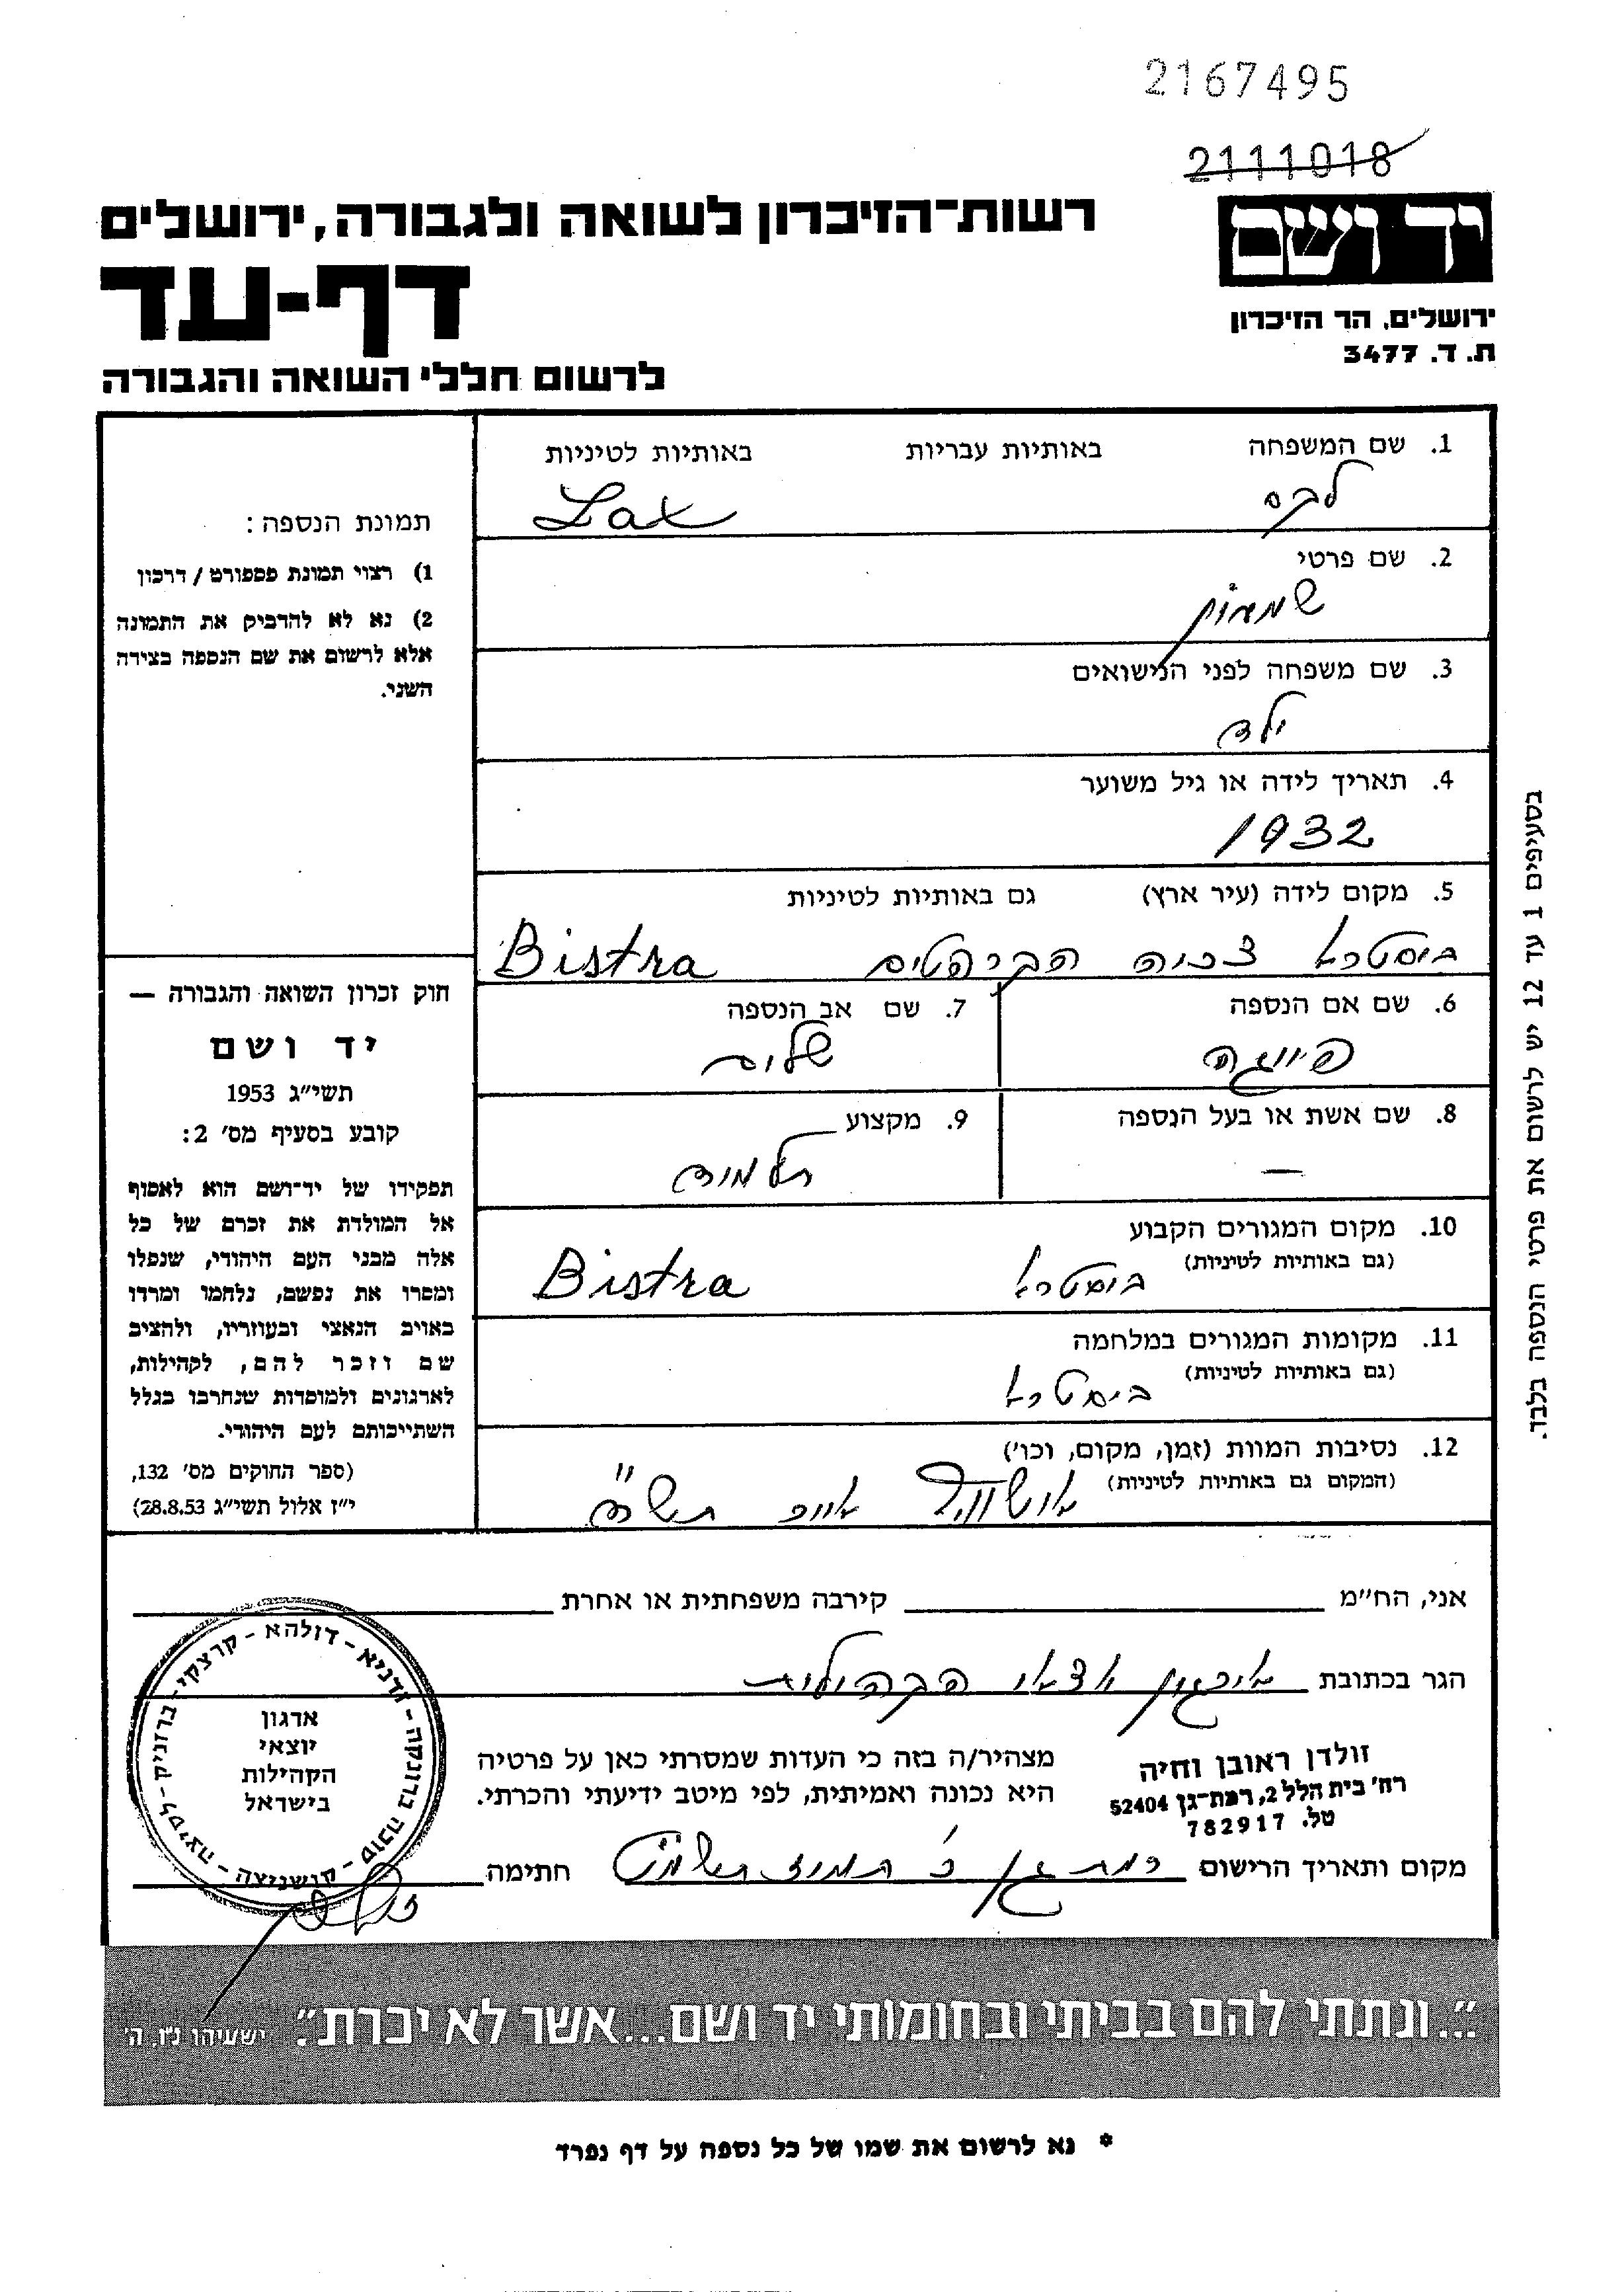 2167495
2111018
יד ושם
ירושלים, הר הזיכרון
ת. ד. 3477
רשות-הזיכרון לשואה ולגבורה, ירושלים
דף-עד
לרשום חללי השואה והגבורה
1. שם המשפחה באותיות עבריות באותיות לטיניות
לקס Lax
2. שם פרטי
שמעון
3. שם משפחה לפני הנישואים
ילד
4. תאריך לידה או גיל משוער
1932
5. מקום לידה (עיר ארץ) גם באותיות לטיניות
ביסטרא צכיה הקרפטים Bistra
6. שם אם הנספה
פייגה
7. שם אב הנספה
שלום
8. שם אשת או בעל הנספה
—
9. מקצוע
תלמיד
10. מקום המגורים הקבוע
(גם באותיות לטיניות)
ביסטרא Bistra
11. מקומות המגורים במלחמה
(גם באותיות לטיניות)
ביסטרא
12. נסיבות המוות (זמן, מקום, וכו')
(המקום גם באותיות לטיניות)
אושוויץ תש"ד
תמונת הנספה :
1) רצוי תמונת פספורט / דרכון
2) נא לא להדביק את התמונה
אלא לרשום את שם הנספה בצידה
השני.
חוק זכרון השואה והגבורה —
יד ושם
תשי"ג 1953
קובע בסעיף מס' 2:
תפקידו של יד-ושם הוא לאסוף
אל המולדת את זכרם של כל
אלה מבני העם היהודי, שנפלו
ומסרו את נפשם, נלחמו ומרדו
באויב הנאצי ובעוזריו, ולהציב
שם וזכר להם, לקהילות,
לארגונים ולמוסדות שנחרבו בגלל
השתייכותם לעם היהודי.
(ספר החוקים מס' 132,
י"ז אלול תשי"ג 28.8.53)
בסעיפים 1 עד 12 יש לרשום את פרטי הנספה בלבד.
אני, הח"מ קירבה משפחתית או אחרת
הגר בכתובת אירגון יוצאי הקהילות
זולדן ראובן וחיה
רח' בית הלל 2, רמת-גן 52404
טל. 782917
מצהיר/ה בזה כי העדות שמסרתי כאן על פרטיה
היא נכונה ואמיתית, לפי מיטב ידיעתי והכרתי.
מקום ותאריך הרישום רמת גן כ' תמוז תשמ"ט חתימה
ארגון
יוצאי
הקהילות
בישראל
"...ונתתי להם בביתי ובחומותי יד ושם...אשר לא יכרת". ישעיהו נ"ו, ה'
* נא לרשום את שמו של כל נספה על דף נפרד